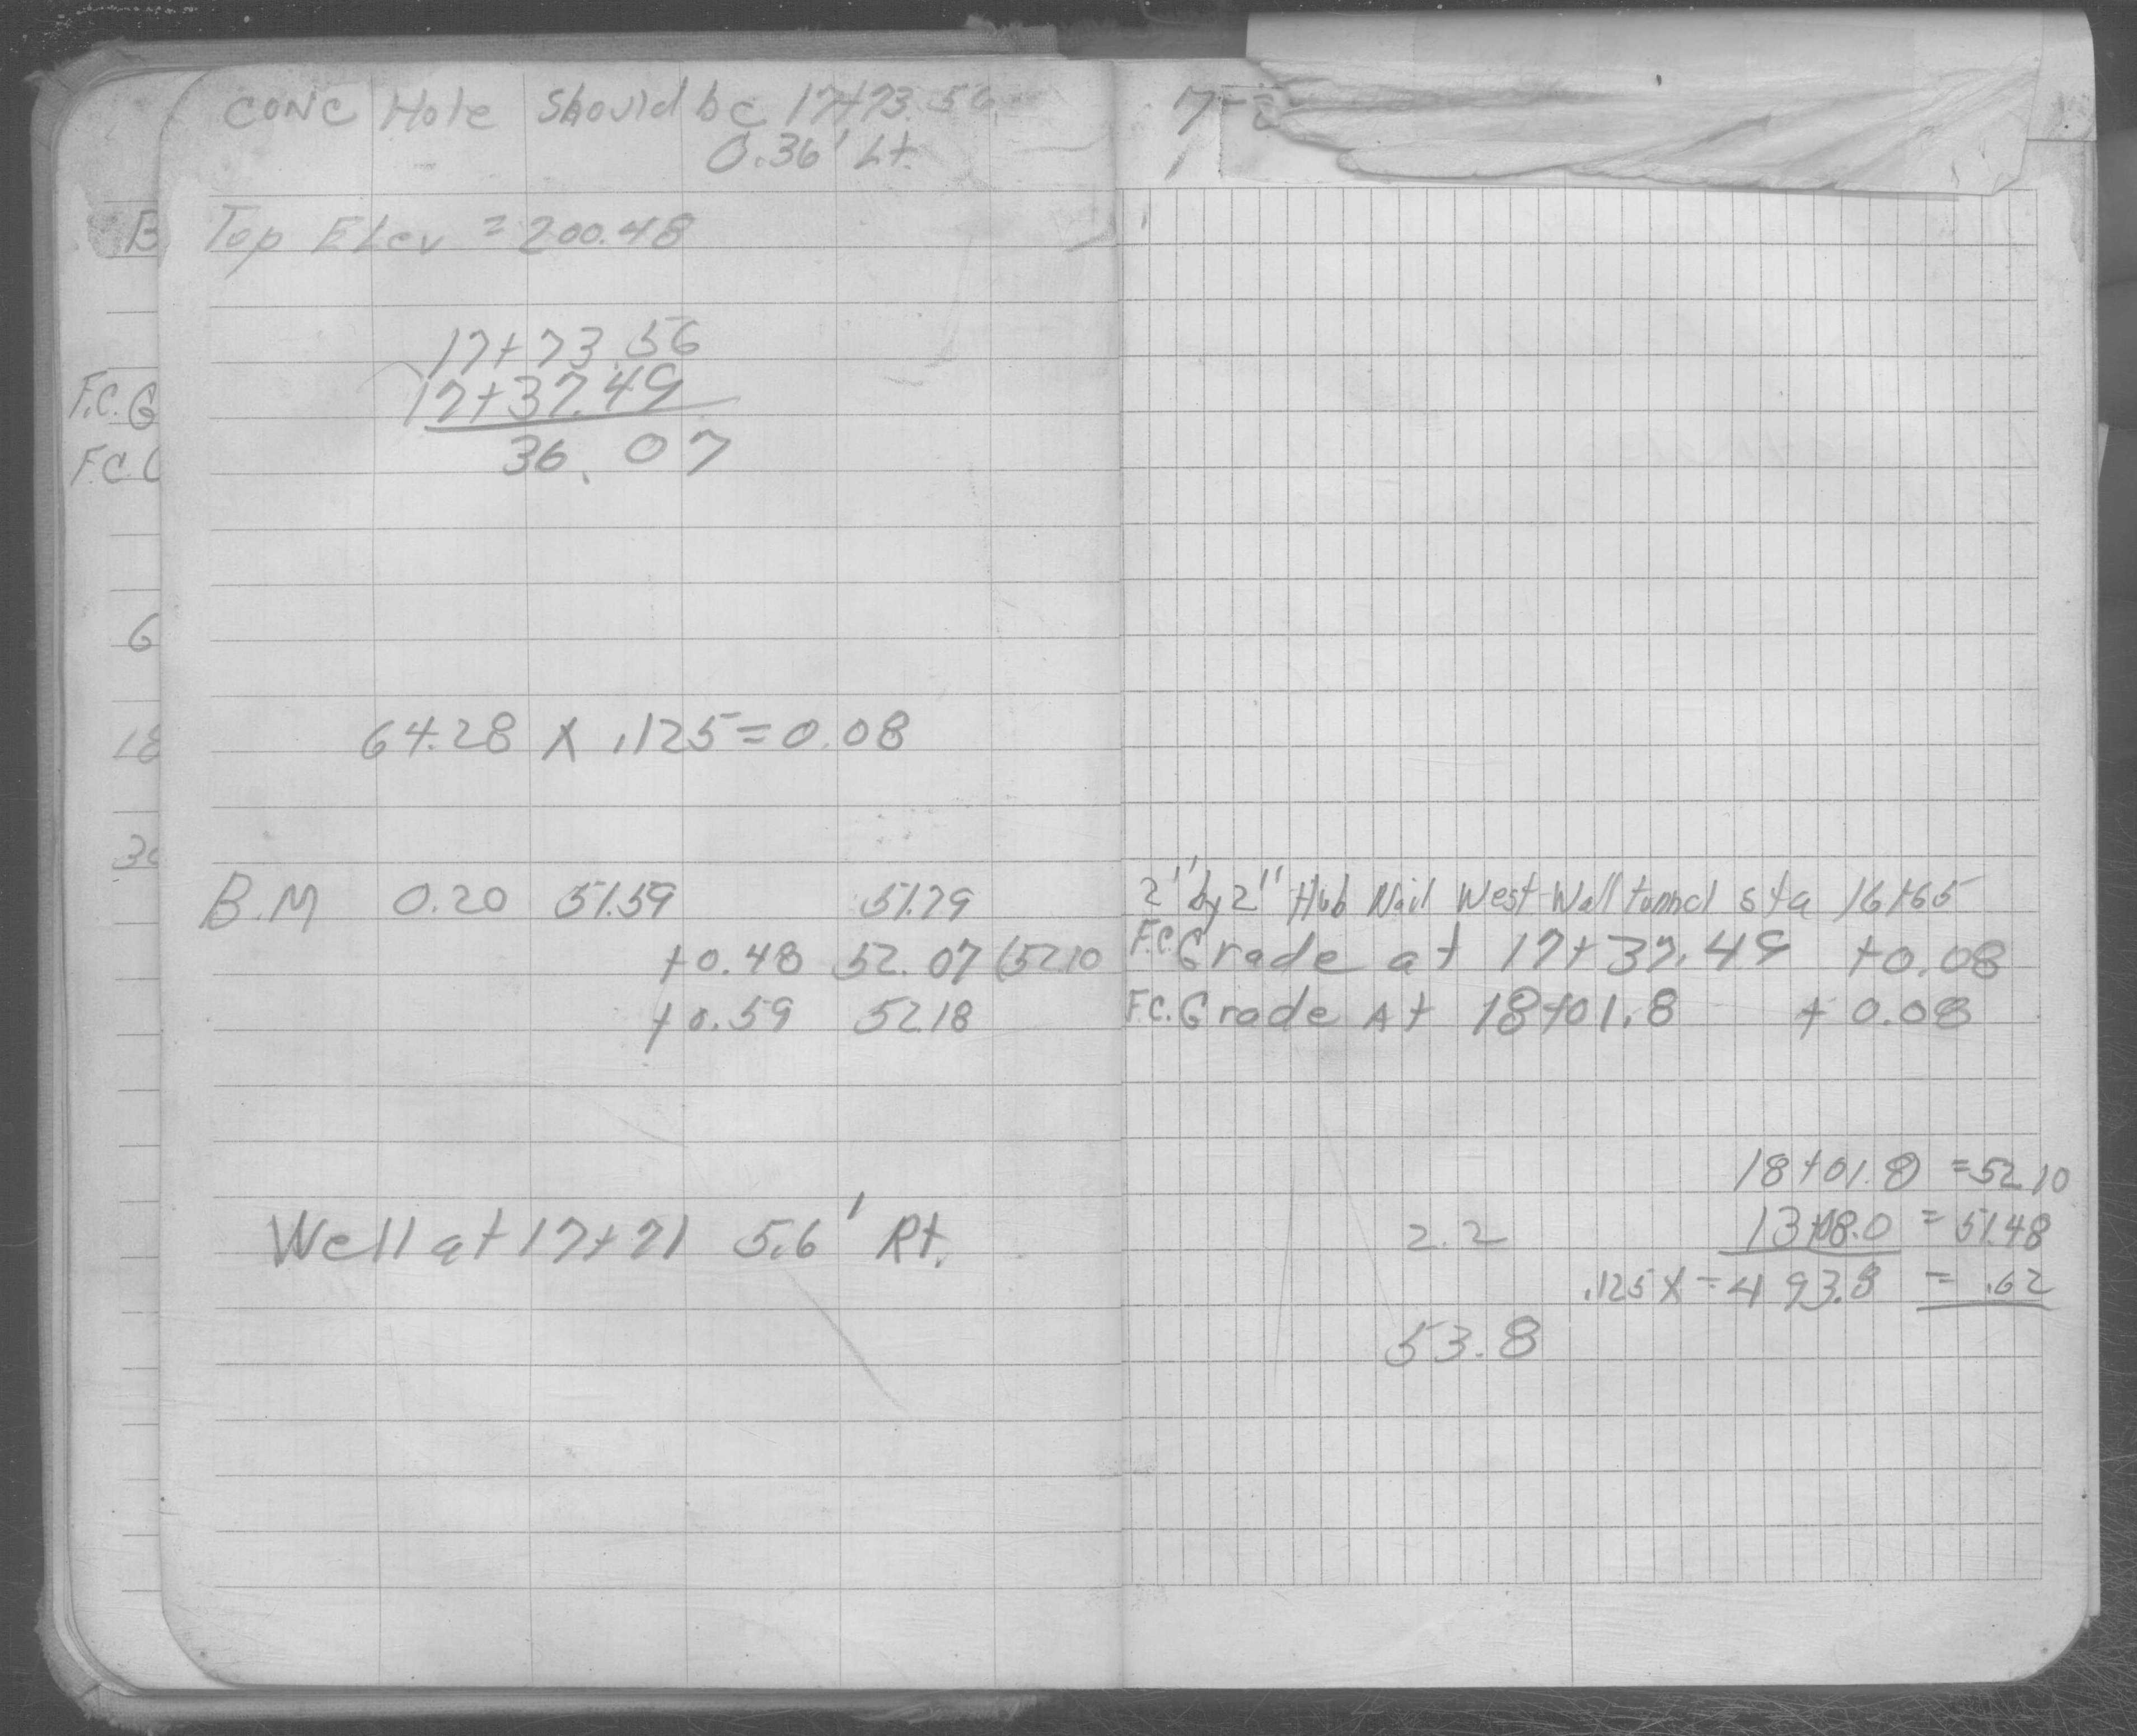 CONC Hole Should be 17+73.56
0.36' Lt.
B
Top Elev = 200.48
17+73.56
17+37.49
36.07
F.C. G
F.C.
6
18
64.28 X .125 = 0.08
B.M 0.20 51.59 51.79
+0.48 52.07 (52.10
+0.59 52.18
Well at 17+71 5.6' Rt.
2" by 2" Hub Nail West Wall tunnel sta 16+65
F.C. Grade at 17+37.49 +0.08
F.C. Grade At 18+01.8 + 0.08
18+01.8 = 52.10
2.2 13+08.0 = 51.48
.125 X = 493.8 = .62
53.8